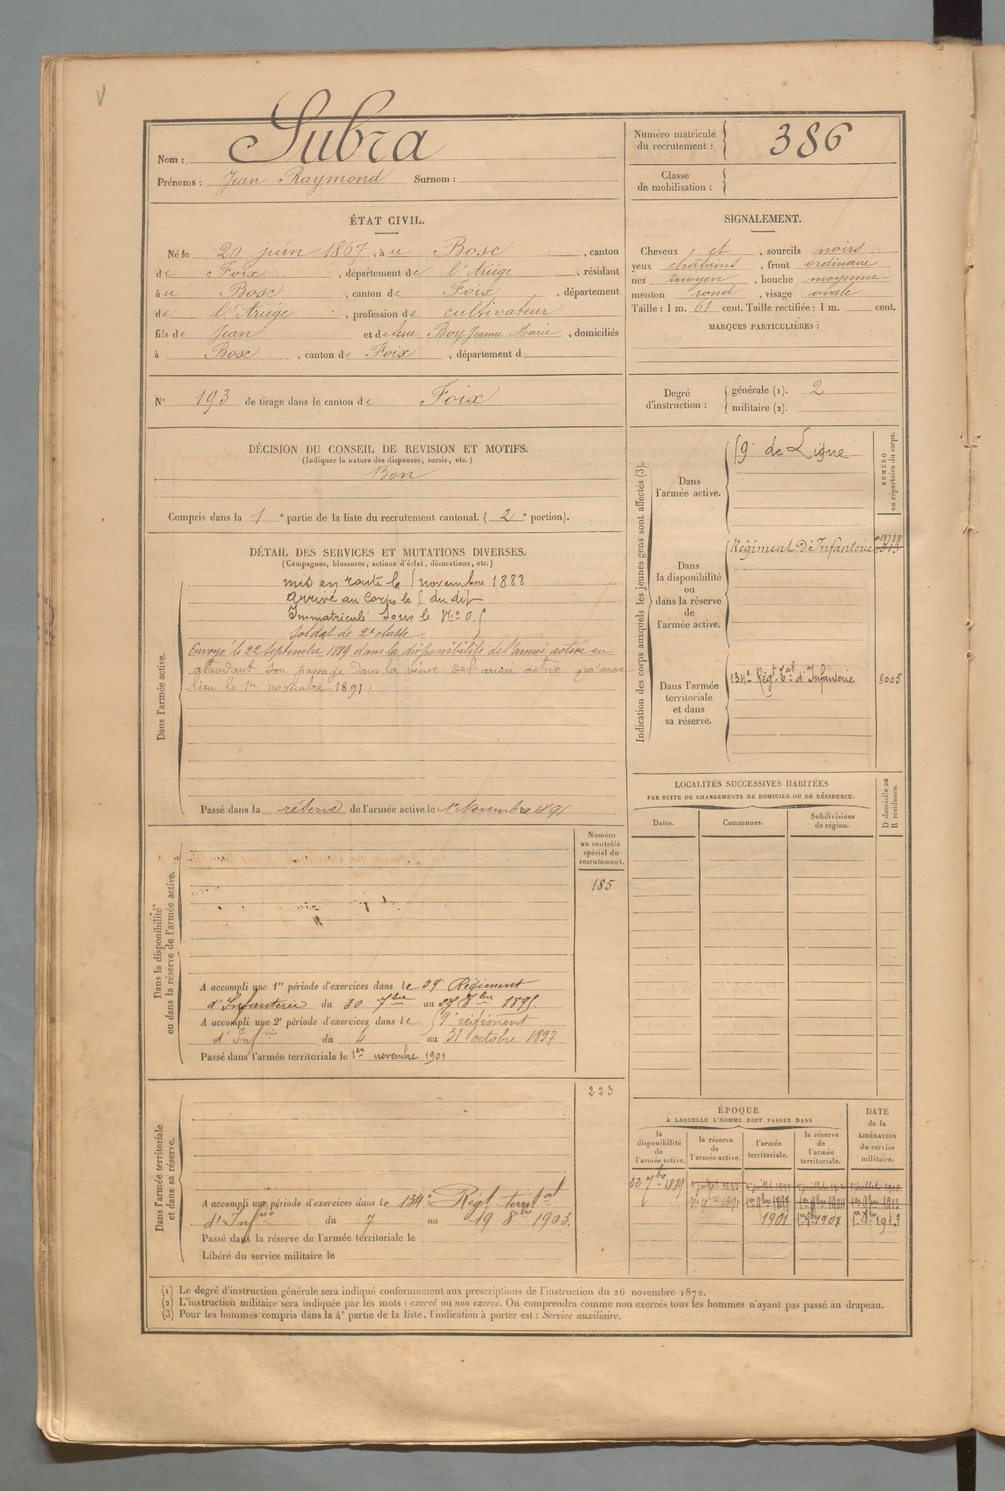 V
Subra
Nom :
Prénoms : Jean Raymond Surnom :
Numéro matricule
du recrutement : 386
Classe
de mobilisation :
ÉTAT CIVIL.
Né le 20 juin 1867, à u Bosc, canton
de Foix, département de l'Ariège, résidant
à u Bosc, canton de Foix, département
de l'Ariège, profession de cultivateur
fils de Jean et de feue Boy Jeanne Marie, domiciliés
à Bosc, canton de Foix, département d
SIGNALEMENT.
Cheveux et, sourcils noirs
yeux châtains, front ordinaire
nez moyen, bouche moyenne
menton rond, visage ovale
Taille : 1 m. 61 cent. Taille rectifiée : 1 m. cent.
MARQUES PARTICULIÈRES :
N° 193 de tirage dans le canton de Foix
Degré
d'instruction :
générale (1). 2
militaire (2).
DÉCISION DU CONSEIL DE REVISION ET MOTIFS.
(Indiquer la nature des dispenses, sursis, etc.)
Bon
Compris dans la 1e partie de la liste du recrutement cantonal. ( 2e portion).
DÉTAIL DES SERVICES ET MUTATIONS DIVERSES.
(Campagnes, blessures, actions d'éclat, décorations, etc.)
Dans l'armée active.
mis en route le novembre 1888
Arrivé au Corps le du dit
Immatriculé sous le N° 0.
Soldat de 2e classe
Envoyé le 22 septembre 1889 dans la disponibilité de l'armée active en
attendant son passage dans la réserve de l'armée active qui aura
lieu le 1er novembre 1891.
Passé dans la réserve de l'armée active le 1er Novembre 1891
Indication des corps auxquels les jeunes gens sont affectés (3).
Dans
l'armée active.
9e de Ligne
NUMÉRO
au répertoire du corps.
Dans
la disponibilité
ou
dans la réserve
de
l'armée active.
Régiment d'Infanterie
Dans l'armée
territoriale
et dans
sa réserve.
134e Régt Tal d'Infanterie 8005
LOCALITÉS SUCCESSIVES HABITÉES
PAR SUITE DE CHANGEMENTS DE DOMICILE OU DE RÉSIDENCE.
Dates.
Communes.
Subdivisions
de région.
D domicile ou
R résidence.
Dans la disponibilité
ou dans la réserve de l'armée active.
Numéro
au contrôle
spécial du
recrutement.
185
A accompli une 1re période d'exercices dans le Régiment
d'Infanterie du 30 7bre au 8bre
A accompli une 2e période d'exercices dans le 9e régiment
d'Infie du 4 au 31 octobre 1897
Passé dans l'armée territoriale le 1er novembre 1901
Dans l'armée territoriale
et dans sa réserve.
223
A accompli une période d'exercices dans le 134e Régt territal
d'Infrie du 7 au 19 8bre 1903.
Passé dans la réserve de l'armée territoriale le
Libéré du service militaire le
ÉPOQUE
À LAQUELLE L'HOMME DOIT PASSER DANS
DATE
de la
LIBÉRATION
du service
militaire.
la
disponibilité
de
l'armée active.
la réserve
de
l'armée active.
l'armée
territoriale.
la réserve
de
l'armée
territoriale.
22 7bre 1889
1901 1er 9bre 1907 1er 9bre 1913
(1) Le degré d'instruction générale sera indiqué conformément aux prescriptions de l'instruction du 26 novembre 1872.
(2) L'instruction militaire sera indiquée par les mots : exercé ou non exercé. On comprendra comme non exercés tous les hommes n'ayant pas passé au drapeau.
(3) Pour les hommes compris dans la 4e partie de la liste, l'indication à porter est : Service auxiliaire.